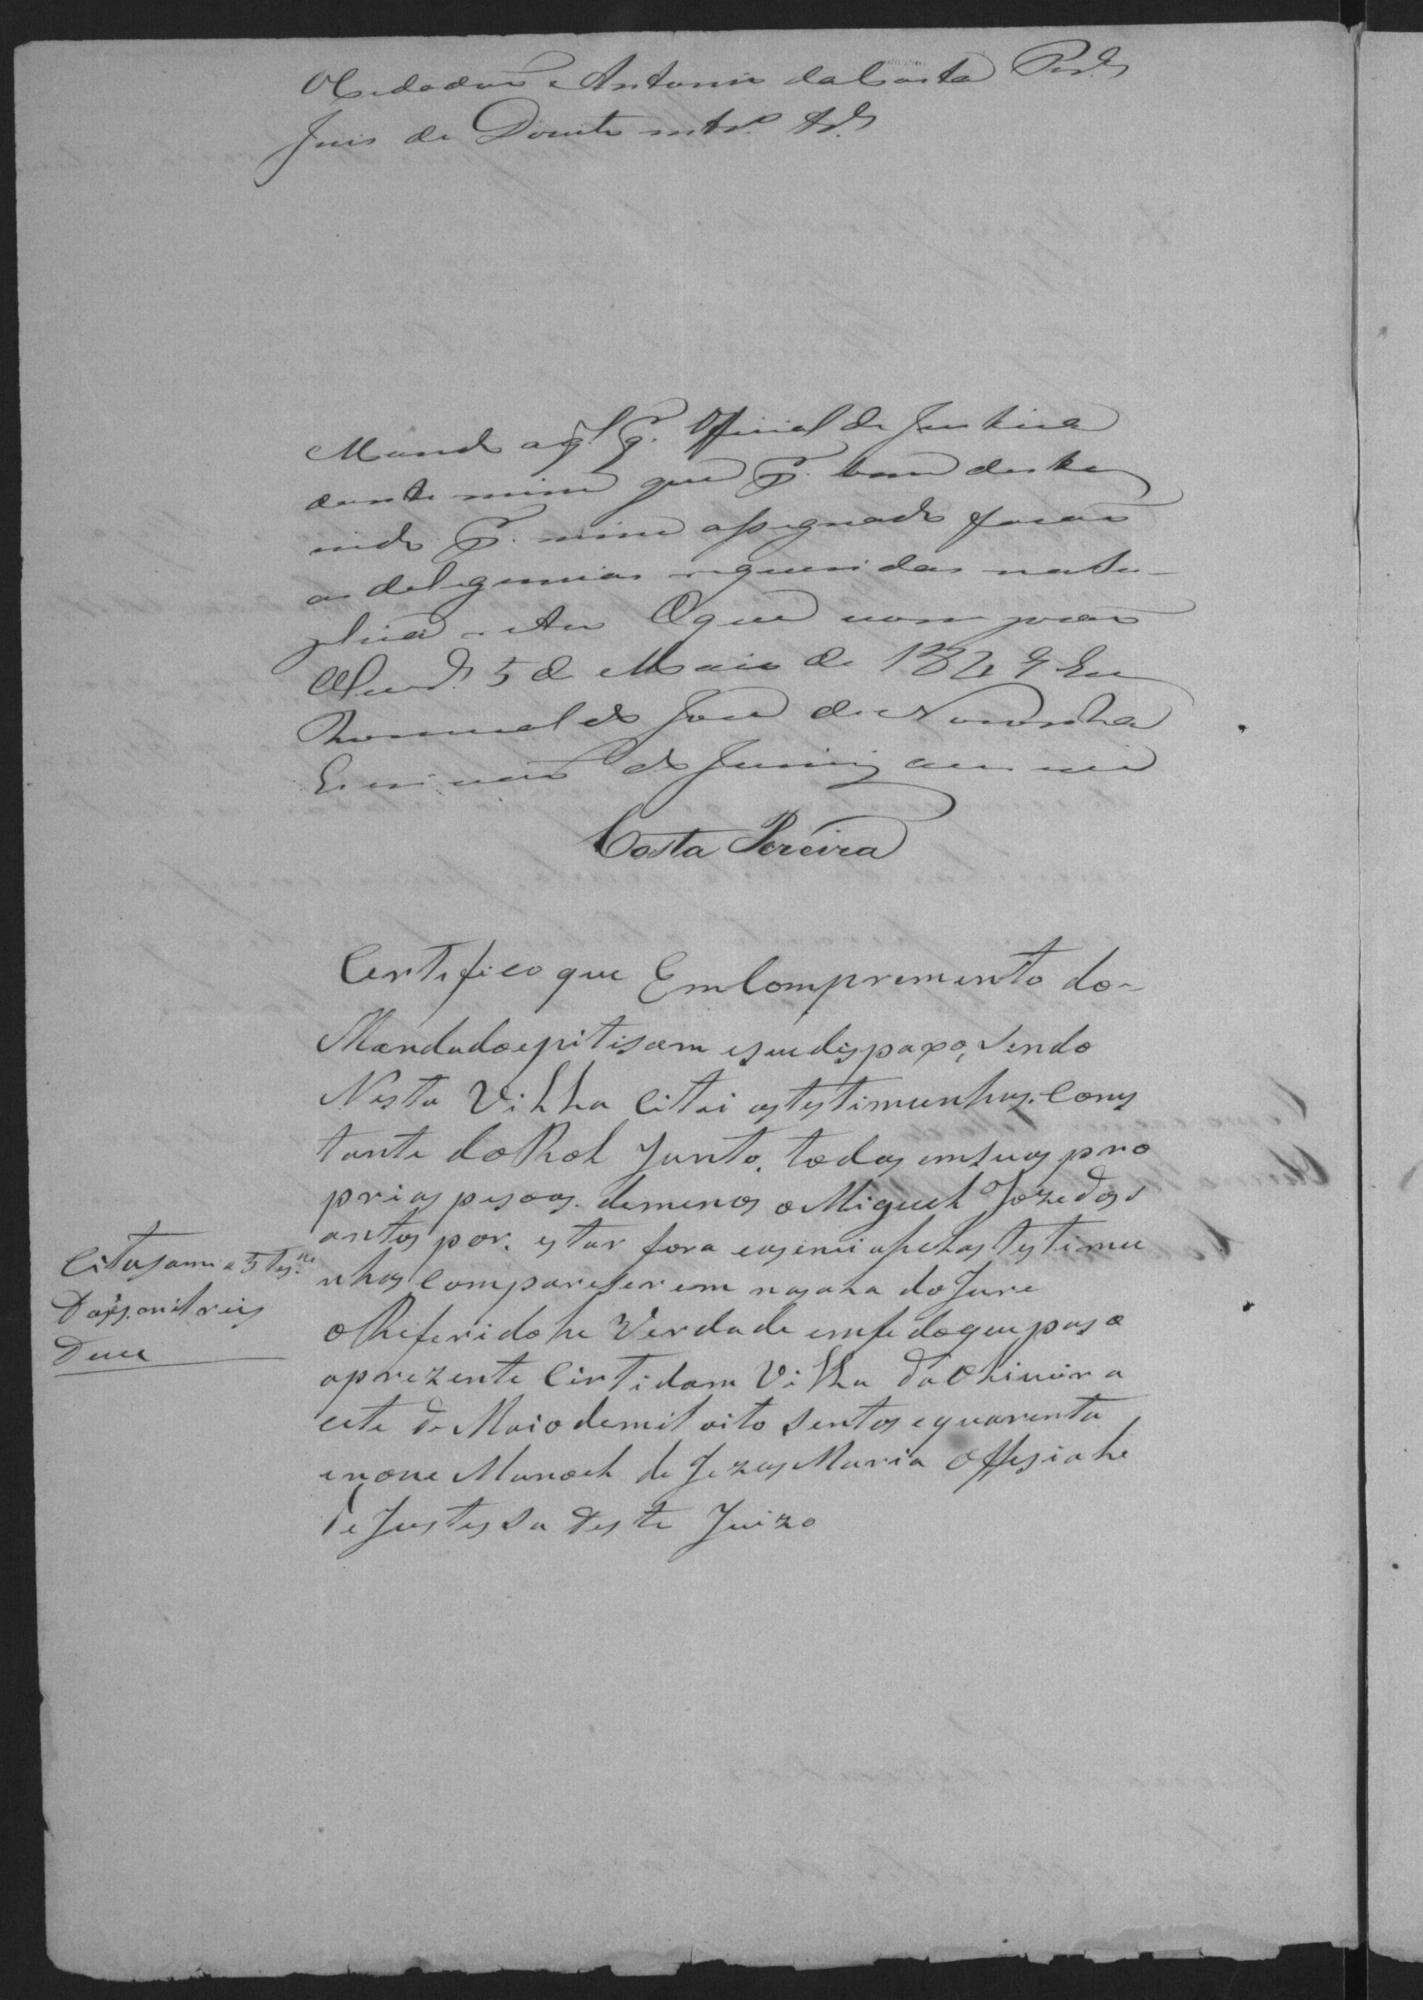 O Cidadão Antonio da Costa Per.ª
Juis de Direito intr.º &ª
Mando a ql. q. Official de Justiça
dante mim que p. bem deste
indo p. mim assignado facão
as deligencias requeridas na Su-
plica O que cumprão
Oliv.ª 5 de Maio de 1849 Eu
Romualdo José de Noronha
Escrivão
Costa Pereira
Certifico que Em Comprimento do-
Mandado epitisam eseu dispaxo, sendo
Nesta Vihha Citei as testimunhas. Cons
tante do Roh Junto, todas em suas pro
prias pesoas. demenos o Miguel Joze dos s
antos por. estar fora easenciapehas testimu
nhas Compareserem nasaha do Jure
o Referido he Verdade emfe doque paso
aprezente Cirtidam Vihha da Ohiveira
cete de Maio demil oito Sentos equarenta
enove Manoeh de Jezus Maria Offisiahe
de Justessa deste Juizo
Citasam a 5 tes.
Dois mil reis